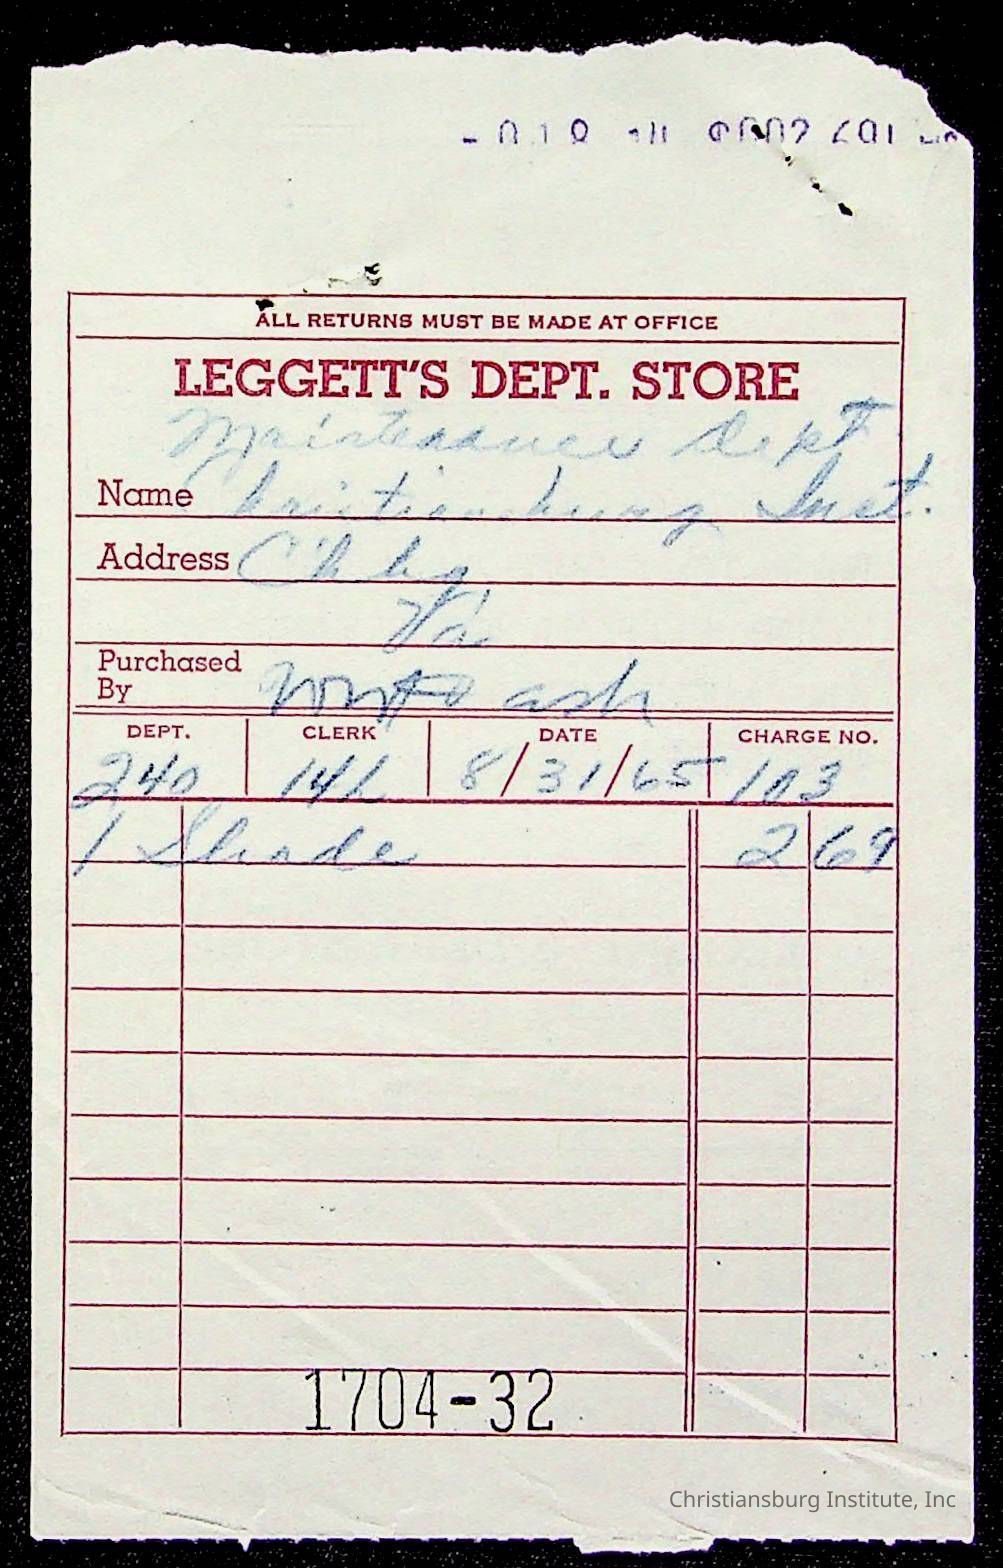 ALL RETURNS MUST BE MADE AT OFFICE
LEGGETT'S DEPT. STORE
Maintenance Dept
Name Christiansburg Inst.
Address Ch bg
Va
Purchased
By ash
DEPT. CLERK DATE CHARGE NO.
240 141 8/31/65 103
1 Shade 2 69
1704-32
Christiansburg Institute, Inc